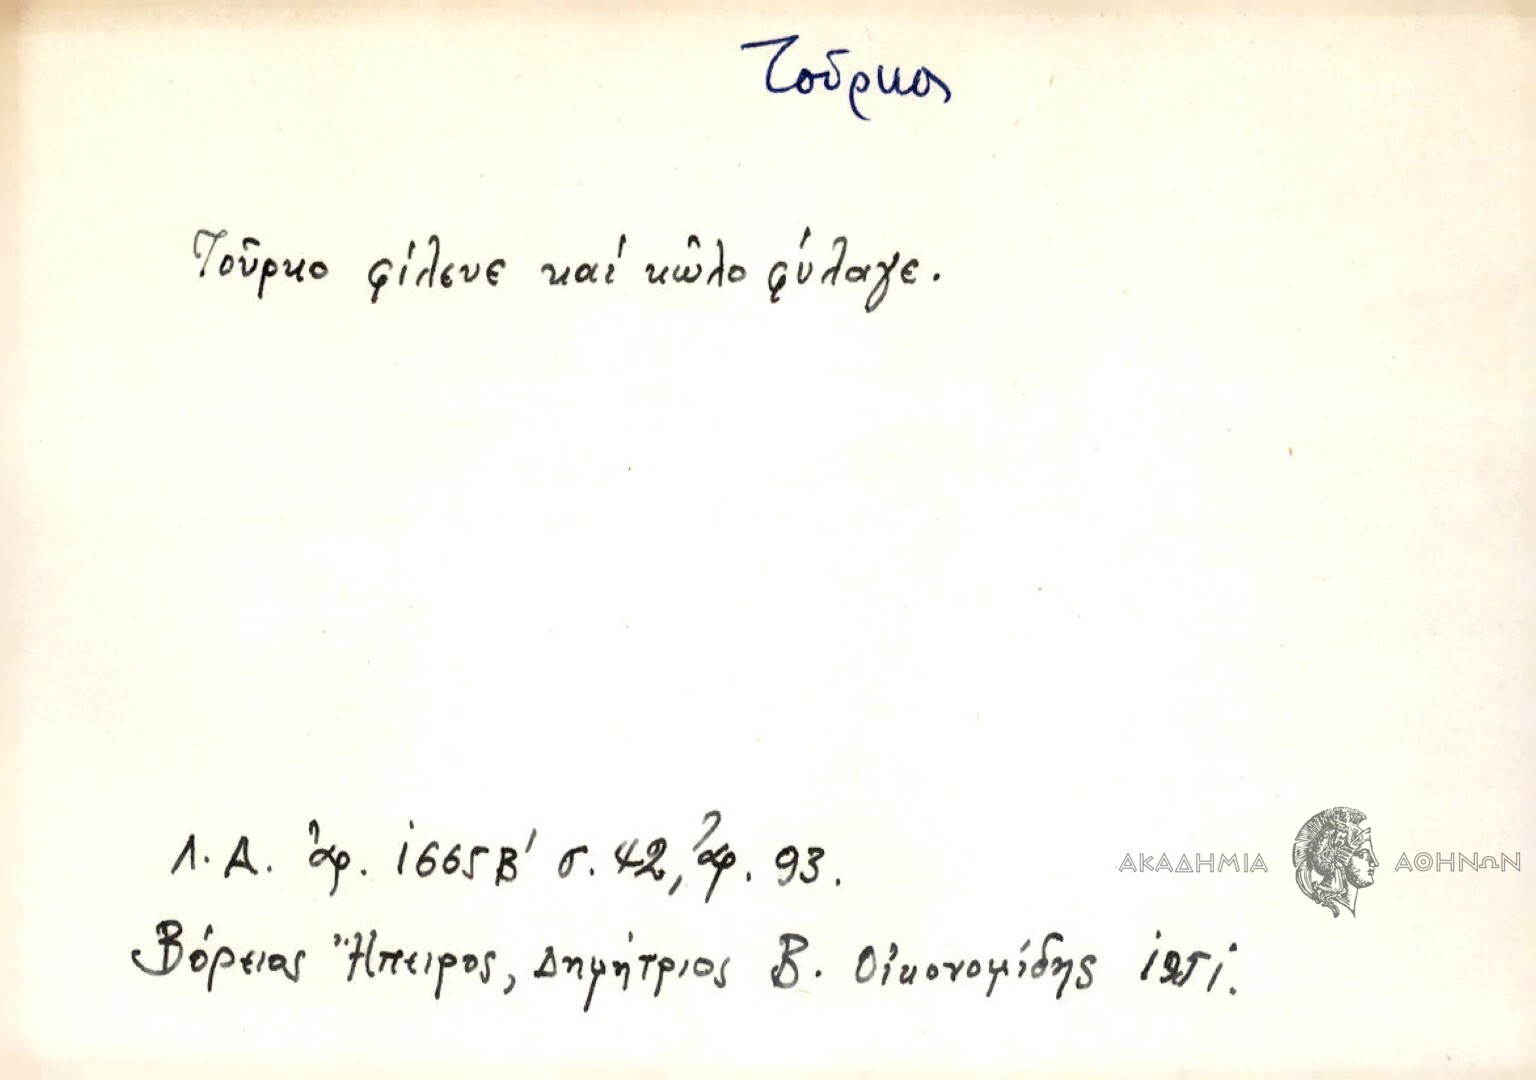 Τοῦρκος
Τοῦρκο φίλευε καί κῶλο φύλαγε.
Λ. Α. ἀρ. 1665Β' σ. 42, ἀρ. 93.
ΑΚΑΔΗΜΙΑ ΑΘΗΝΩΝ
Βόρειος Ἤπειρος, Δημήτριος Β. Οἰκονομίδης 1951.